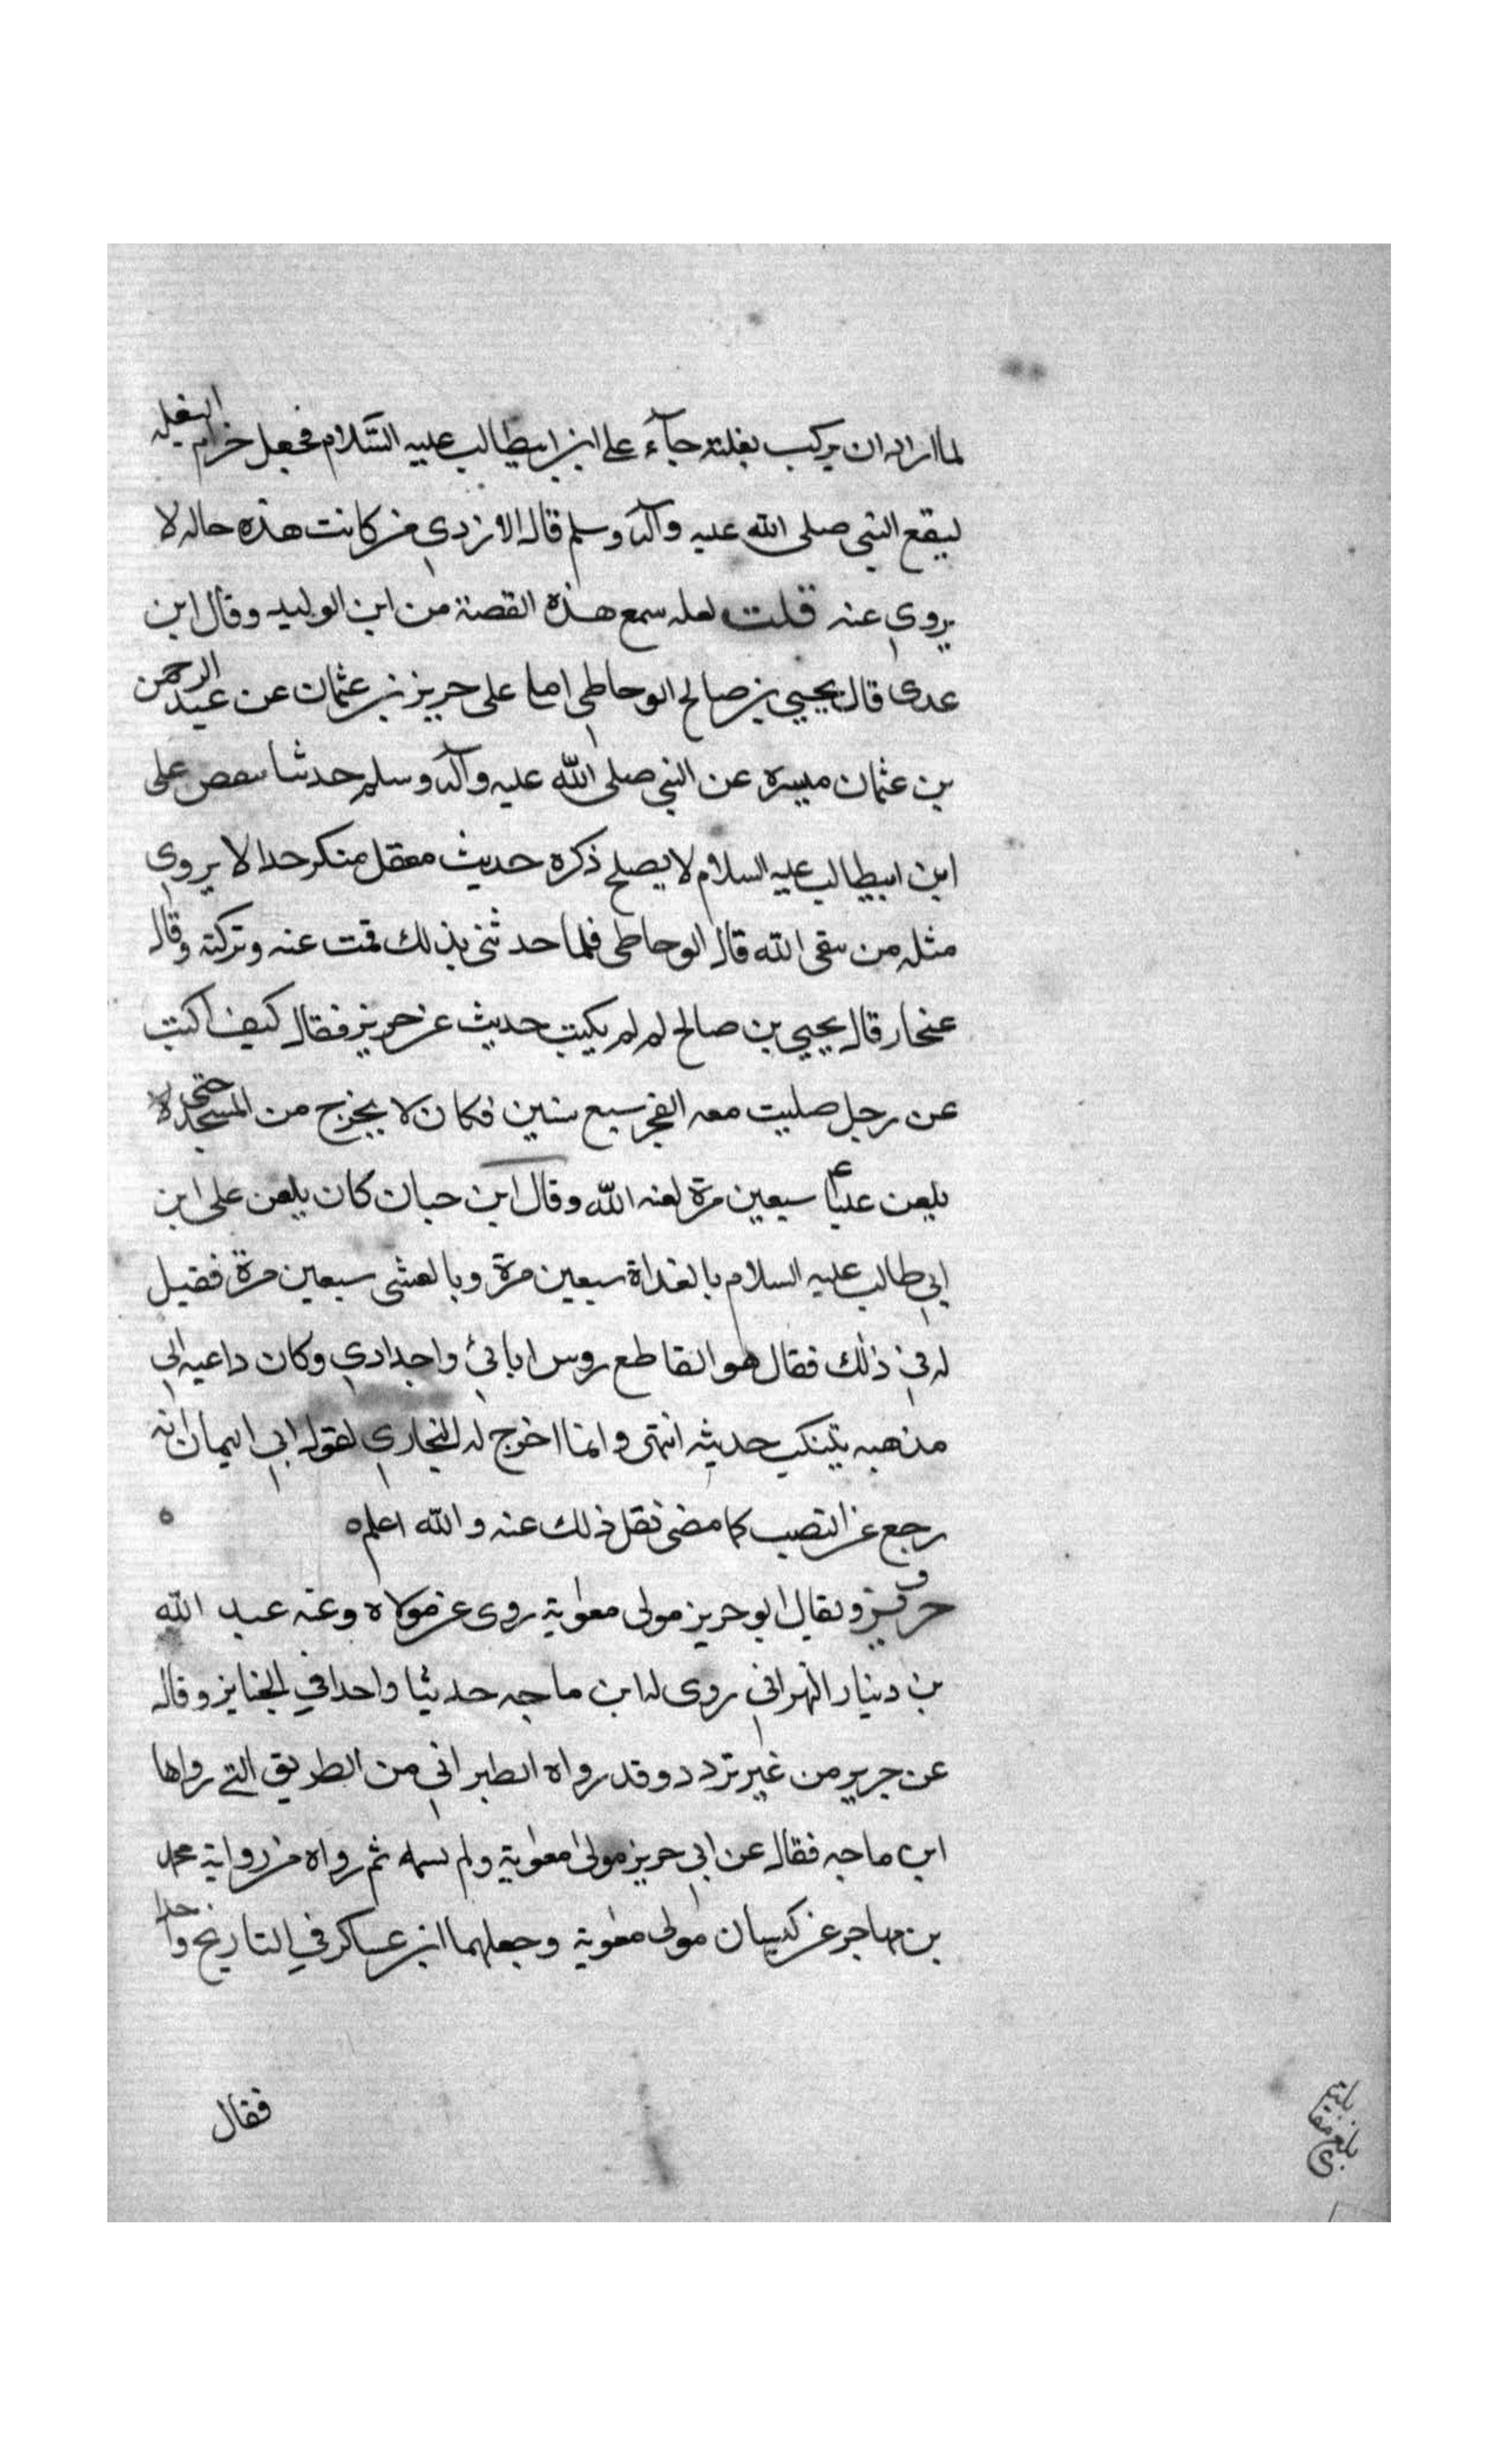 لما اراد ان يركب بغلته جآء علي ابن ابيطالب عليه السَّلام فجعل حزام البغله
ليقع النبي صلى الله عليه وآله وسلم قال الازدي من كانت هذه حاله لا
يروي عنه قلت لعله سمع هذه القصة من ابن الوليد وقال ابن
عدى قال يحيي بن صالح الوحاطي املا على حريز بن عثمان عن عبد الرحمن
بن عثمان ميسرة عن النبي صلى الله عليه وآله وسلم حدثنا سعص على
ابن ابيطالب عليه السلام لا يصلح ذكره حديث معقل منكر حدا لا يروي
مثله من يتقى الله قال الوحاطي فلما حدثني بذلك قمت عنه وتركته وقال
عنجار قال يحيي بن صالح لم لم يكتب حديث عن حريز فقال كيف اكتب
عن رجل صليت معه الفجر سبع سنين فكان لا يخرج من المسجد حتى
يلعن عليًا سبعين مرة لعنه الله وقال ابن حبان كان يلعن على ابن
ابي طالب عليه السلام بالغداة سبعين مرة وبالعشى سبعين مرة فقيل
له في ذلك فقال هو القاطع روس ابائي واجدادي وكان داعيه الي
مذهبه يتنكب حديثه انتهى وانما اخرج له البخاري لقول ابي اليمان انه
رجع عن النصب كما مضى نقل ذلك عنه والله اعلم ه ه
حريز ق ويقال ابو حريز مولى معوية روى عن مولاه وعنه عبد الله
بن دينار النهراني روى له ابن ماجه حديثا واحدا في الجنايز وقال
عن جرير من غير تردد وقد رواه الطبراني من الطريق التي رواها
ابن ماجه فقال عن ابي حريز مولى معوية ولم يسمه ثم رواه من رواية محمد
بن مهاجر عن كيسان مولى معوية وجعلهما ابن عساكر في التاريخ واحدا
فقال